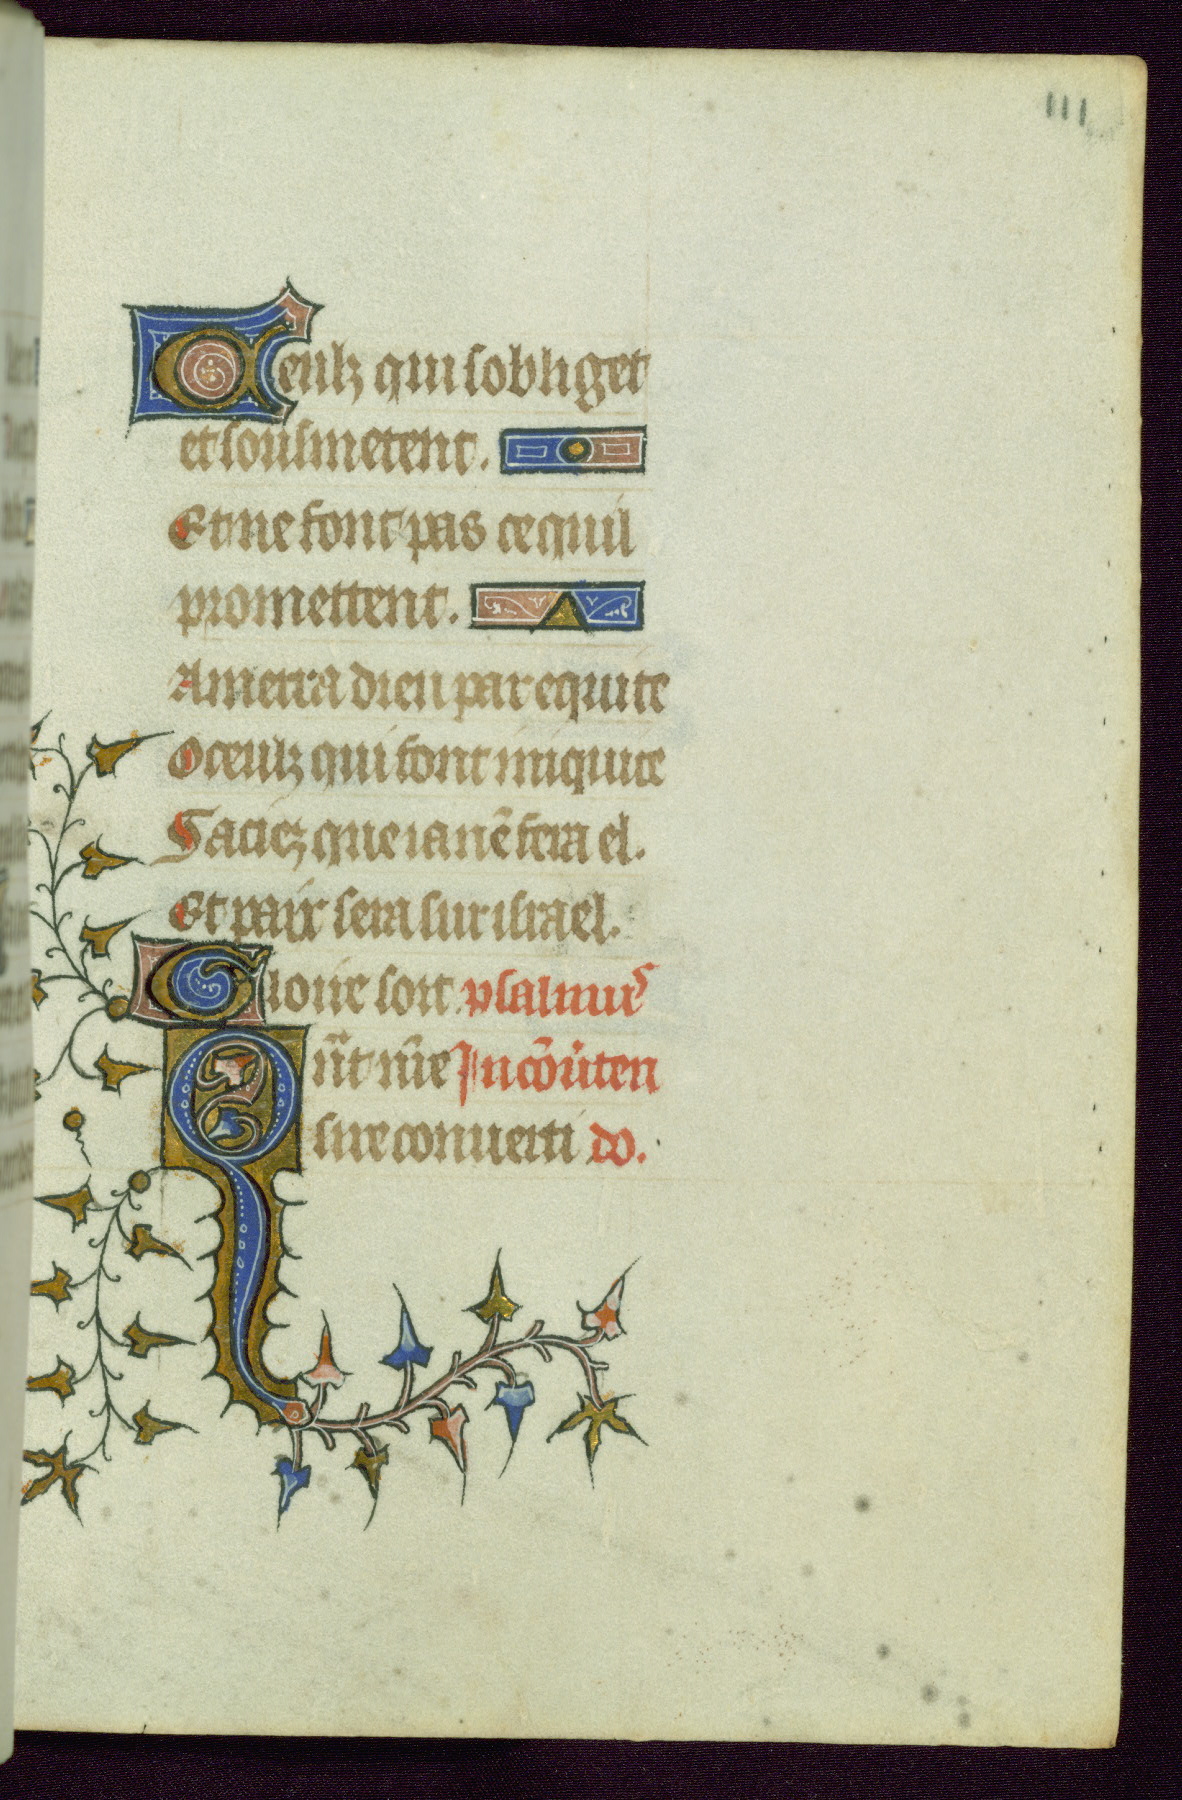 111
Ceulz qui sobliget
et sousmetent.
Et ne font pas ce quil
promettent.
A metra dieu par equite
O ceulz qui font iniquite
Saciez que ia nē fera el.
Et paix sera sur israel.
Gloire soit psalmus
Qn̄t nr̄e In cōūten
sire conuerti do.